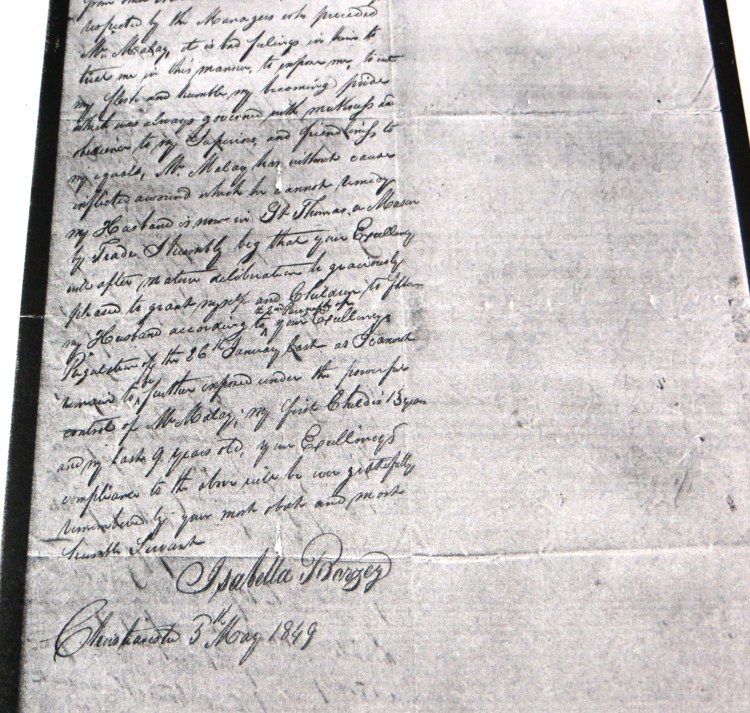 respected by the Managers who preceded
Mr. Malay, it is bad felings in him to
treat me in this manner, to expose me, to cut
my flesh and humble my becoming pride
which was always governed with meekness and
obedience to my Superiors, and friendliness to
my equals, Mr. Malay has without cause
inflicted a wound which he cannot remedy
my Husband is now in St Thomas, a Mason
by Trade. I humbly beg that your Excellency
will after mature deliberation be graciously
pleased to grant myself and Children to follow
my Husband according to the Paragraph of your Excellency's
Regulation of the 26th January last as I cannot
remain to be further exposed under the powerful
control of Mr Malay, my first Child is 13 years
and my last 9 years old, your Excellency's
compliance to the above will be ever gratefully
remembered by your most obdt and most
humble Servant
Isabella Barzey
Christiansted 5th May 1849